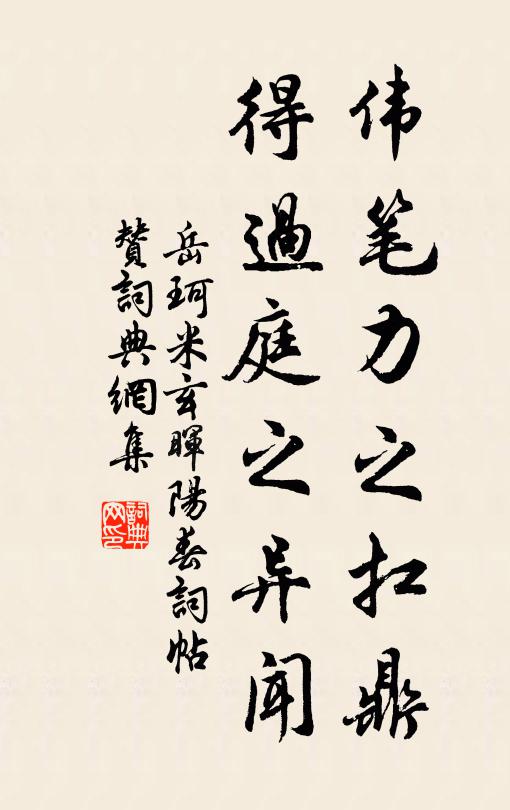 伟笔力之扛鼎
得過庭之异闻
岳珂米玄暉陽春詞帖
贊詞典網集
詞典网印